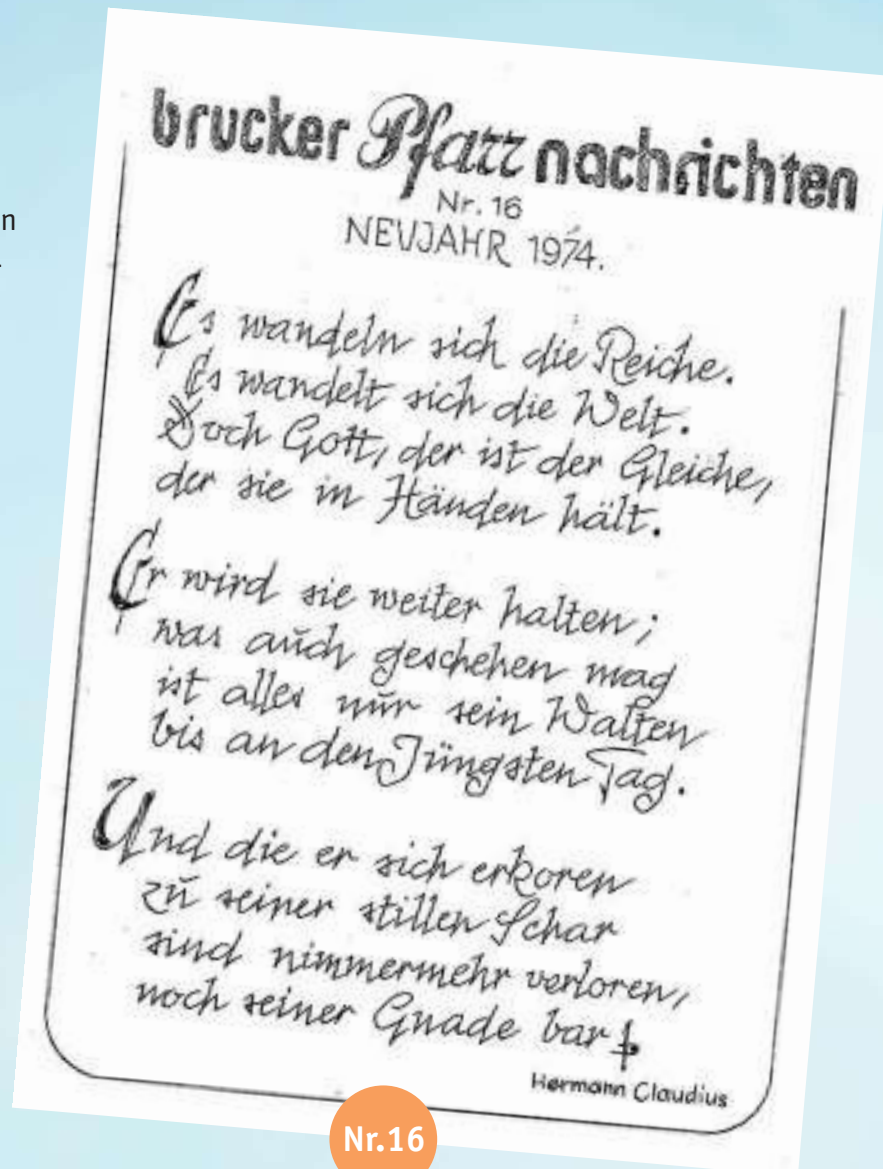 n
brucker Pfarr nachrichten
Nr. 16
NEUJAHR 1974.
Es wandeln sich die Reiche.
Es wandelt sich die Welt.
Doch Gott, der ist der Gleiche,
der sie in Händen hält.
Er wird sie weiter halten;
was auch geschehen mag
ist alles nur sein Walten
bis an den Jüngsten Tag.
Und die er sich erkoren
zu seiner stillen Schar
sind nimmermehr verloren,
noch seiner Gnade bar
Hermann Claudius
Nr.16